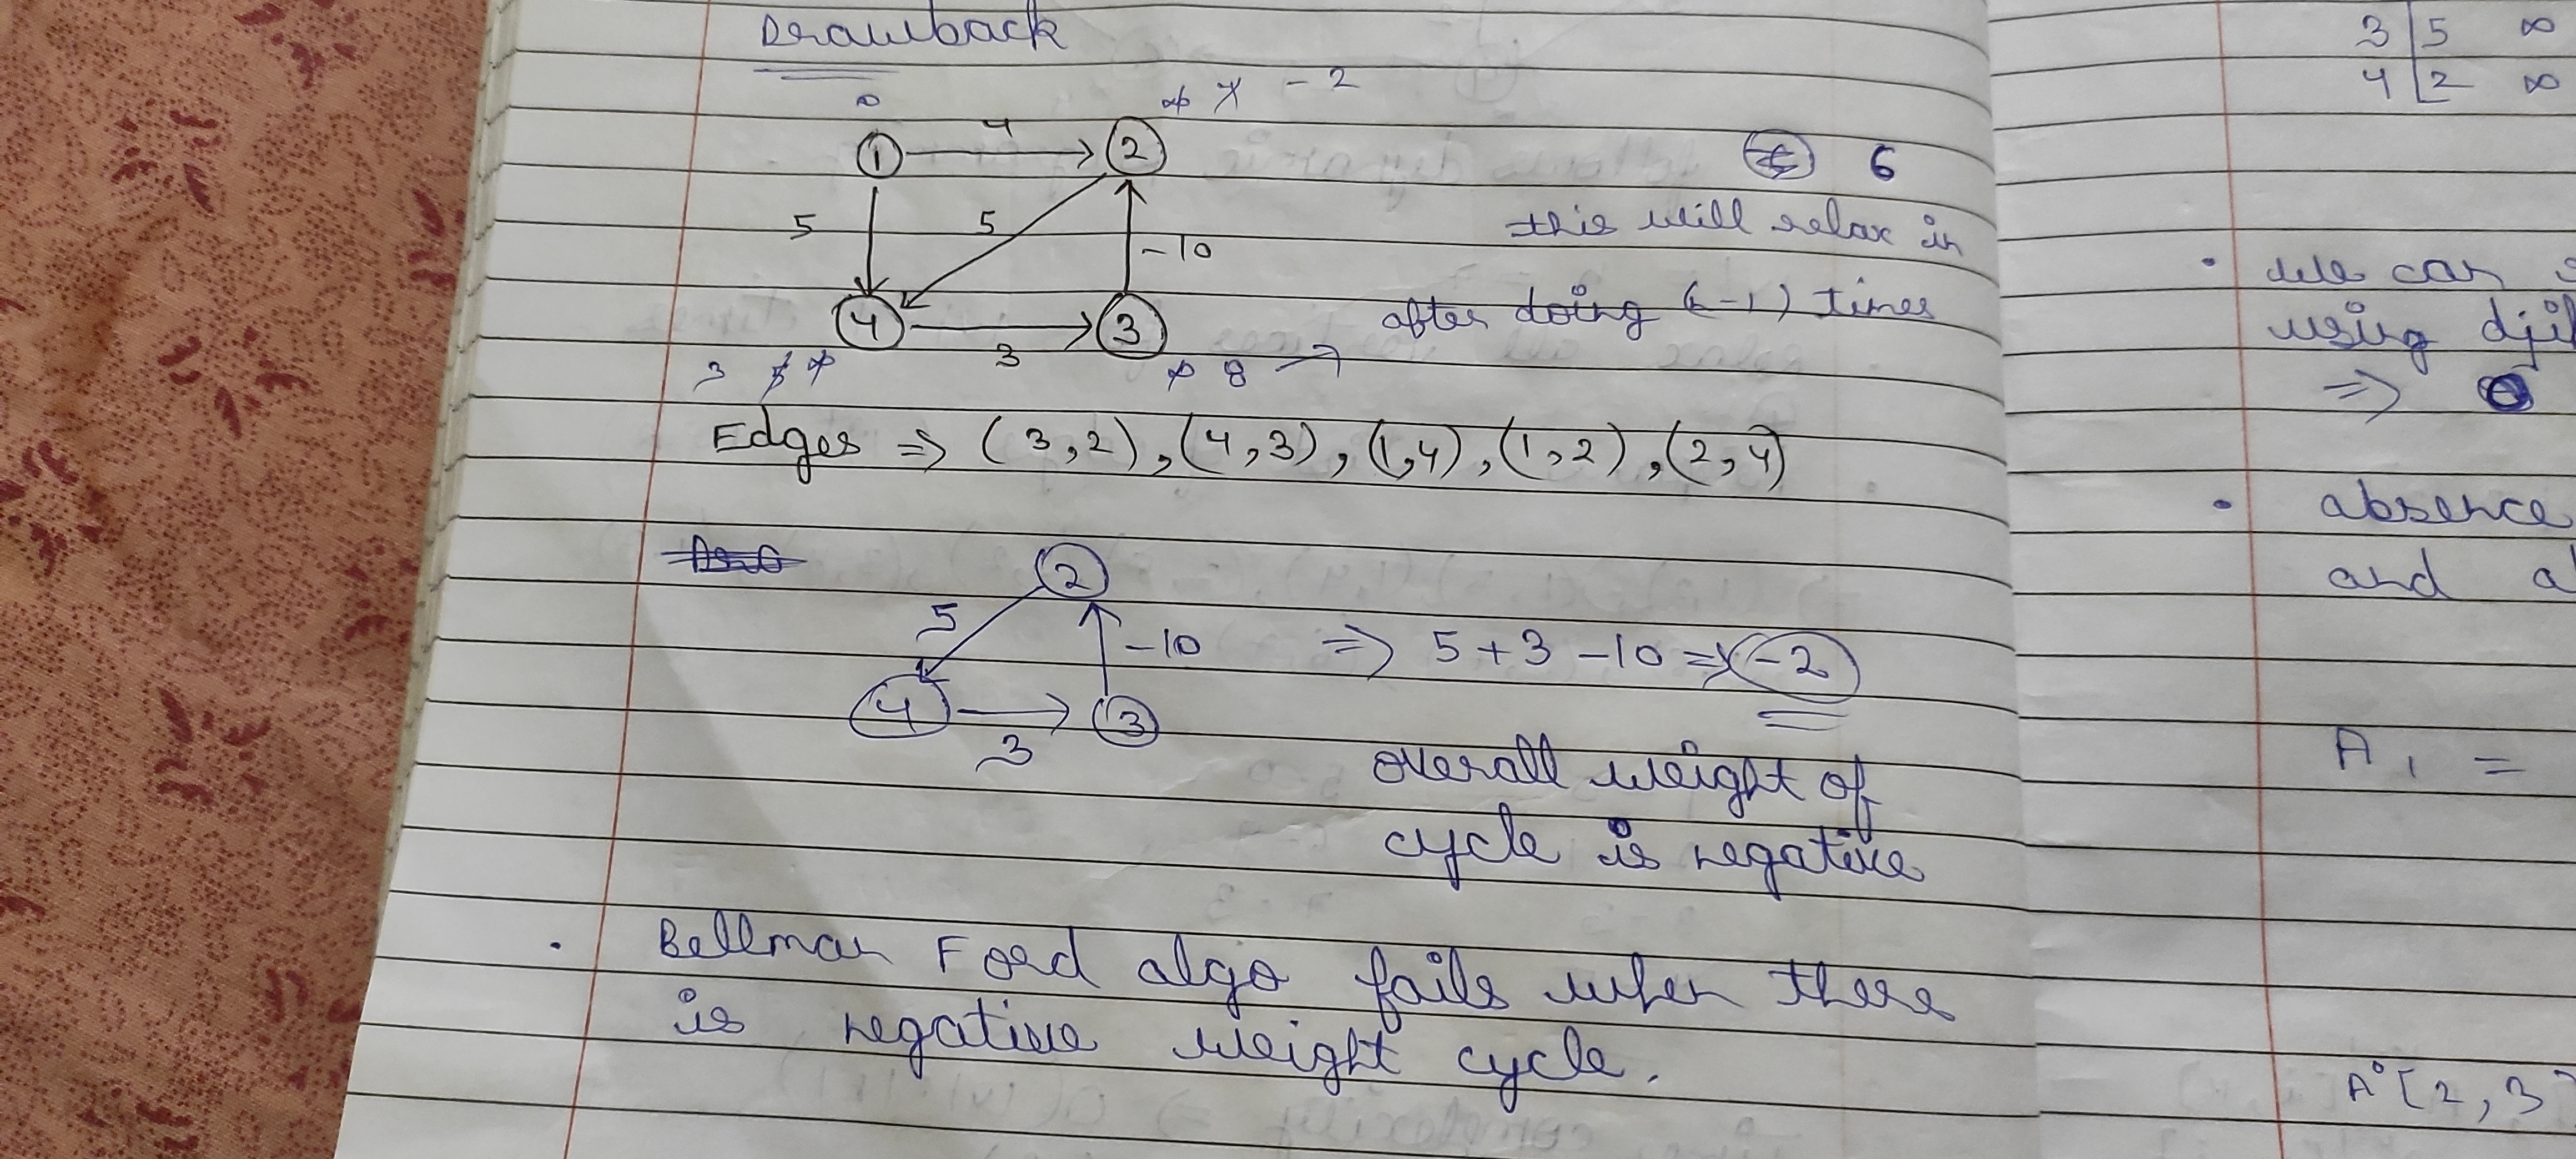 Drawback
0
∞ 4 -2
1
4
2
5
5
-10
this will relax in
after doing (-1) times
4
3
3
3 5 ∞
∞ 8
Edges => (3,2), (4,3), (1,4), (1,2), (2,4)
2
5
-10
=> 5+3-10 = -2
4
3
3
overall weight of
cycle is negative
Bellman Ford algo fails when there
is negative weight cycle.
3 5 ∞
4 2 ∞
we can
using
=>
absence
and
A1 =
A°[2,3]